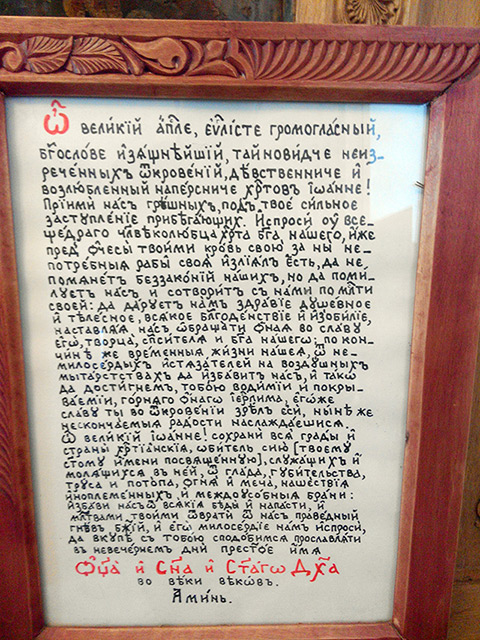 Ѽ вели́кїй а҆п҃ле, є҆ѵ҃лі́сте громогла́сный,
бг҃осло́ве и҆зѧ́щнѣйшїй, тайнови́дче неиз–
рече́нныхъ ѿкрове́нїй, дѣ́вственниче и҆
возлю́бленный напе́рсниче хрⷭ҇то́въ і҆ѡа́нне!
Прїими́ на́съ грѣ́шныхъ, подъ твоѐ си́льное
заступле́нїе прибѣга́ющихъ. И҆спросѝ оу҆ все–
ще́драго чл҃вѣколю́бца хрⷭ҇та̀ бг҃а на́шего, и҆́же
пред̾ ѻ҆чесы̀ твои́ми кро́вь свою̀ за ны̀ не–
потре́бныѧ рабы̀ своѧ̑ и҆злїѧ́лъ є҆́сть, да не
помѧне́тъ беззако́нїй на́шихъ, но да поми́–
луетъ на́съ, и҆ сотвори́тъ съ на́ми по мⷭ҇ти
свое́й: да да́руетъ на́мъ здра́вїе душе́вное
и҆ тѣле́сное, всѧ́кое благоде́нствїе и҆ и҆зоби́лїе,
наставлѧ́ѧ на́съ ѡ҆браща́ти ѻ҆́наѧ во сла́ву
є҆гѡ̀, творца̀, сп҃си́телѧ и҆ бг҃а на́шегѡ: по кон–
чи́нѣ же вре́менныѧ жи́зни на́шеѧ, ѿ не–
милосе́рдыхъ и҆стѧза́телей на возду́шныхъ
мыта́рствствахъ да и҆зба́витъ на́съ, и҆ та́кѡ
да дости́гнемъ, тобо́ю води́мїи и҆ покры–
ва́емїи, го́рнѧгѡ ѻ҆́нагѡ і҆ерⷭ҇ли́ма, є҆гѡ́же
сла́ву ты̀ во ѿкрове́нїи зрѣ́лъ є҆сѝ, ны́нѣ же
нескон̾ча́емыѧ ра́дости наслажда́ешисѧ.
Ѽ вели́кїй і҆ѡа́нне! сохранѝ всѧ̑ гра́ды и҆
страны̑ хрⷭ҇тїа́нскїѧ, ѡ҆би́тель сїю̀ [твоемꙋ̀
ст҃о́мꙋ и҆́мени посвѧще́ннꙋю], слꙋжа́щихъ и҆
молѧ́щихсѧ въ не́й, ѿ гла́да, гꙋби́тельства,
трꙋ́са и҆ пото́па, ѻ҆гнѧ̀ и҆ меча̀, наше́ствїѧ
и҆ноплеме́нныхъ, и҆ междоꙋсо́бныѧ бра́ни:
и҆зба́ви на́съ ѿ всѧ́кїѧ бѣды̀ и҆ напа́сти, и҆
мл҃твами твои́ми ѿвратѝ ѿ на́съ пра́ведный
гнѣ́въ бж҃їй, и҆ є҆гѡ̀ милосе́рдїе на́мъ и҆спросѝ,
да вкꙋ́пѣ съ тобо́ю сподо́бимсѧ прославлѧ́ти
въ невече́рнемъ днѝ прест҃о́е и҆́мѧ
Ѻ҆ц҃а̀ и҆ Сн҃а и҆ Ст҃а́гѡ Дх҃а
во вѣ́ки вѣкѡ́въ.
Ами́нь.